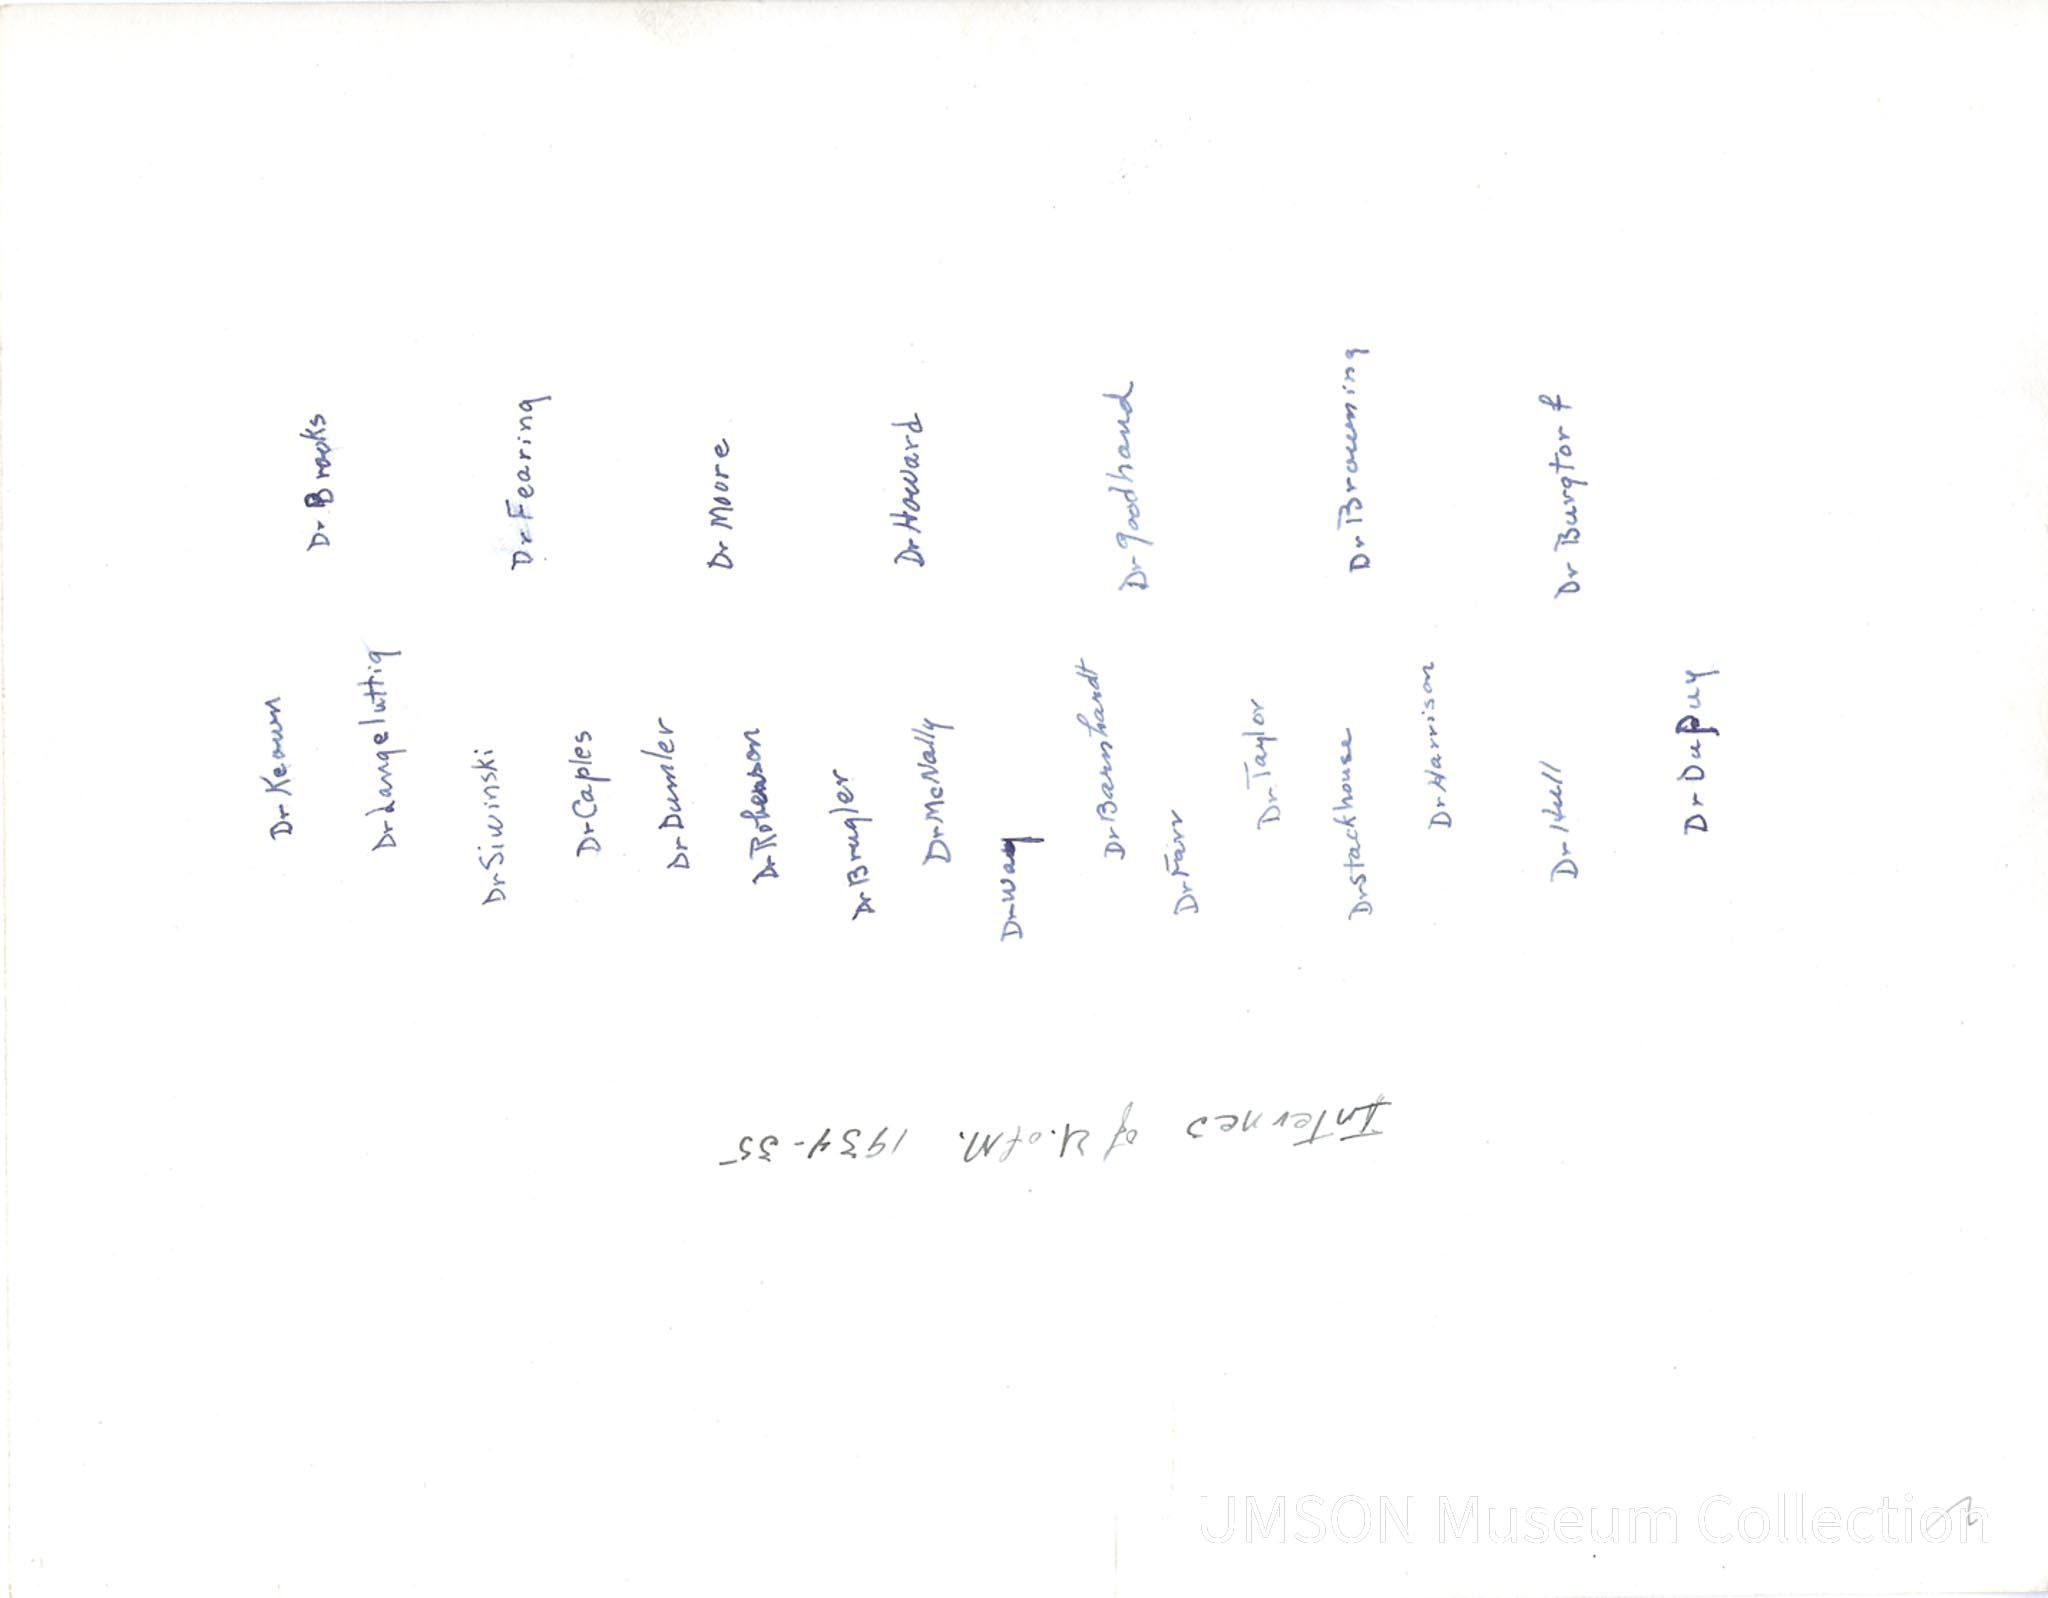 Dr Brooks
Dr Fearing
Dr Moore
Dr Howard
Dr Goodhand
Dr Browning
Dr Burgtorf
Dr Keown
Dr Langeluttig
Dr Siwinski
Dr Caples
Dr Dumler
Dr Roberson
Dr Brugler
Dr McNally
Dr Way
Dr Barnhardt
Dr Farr
Dr Taylor
Dr Stackhouse
Dr Harrison
Dr Hull
Dr DuPuy
Internes of U. of M. 1934-35
UMSON Museum Collection